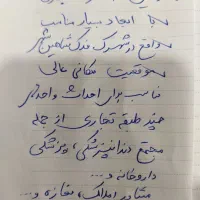 با ابعاد بسیار مناسب
واقع در شهرک فدک شاهین شهر
موقعیت مکانی عالی
مناسب برای احداث واحدهای
چند طبقه تجاری از جمله
مجتمع دندانپزشکی، پزشکی
داروخانه و...
مشاور املاک، مغازه و...